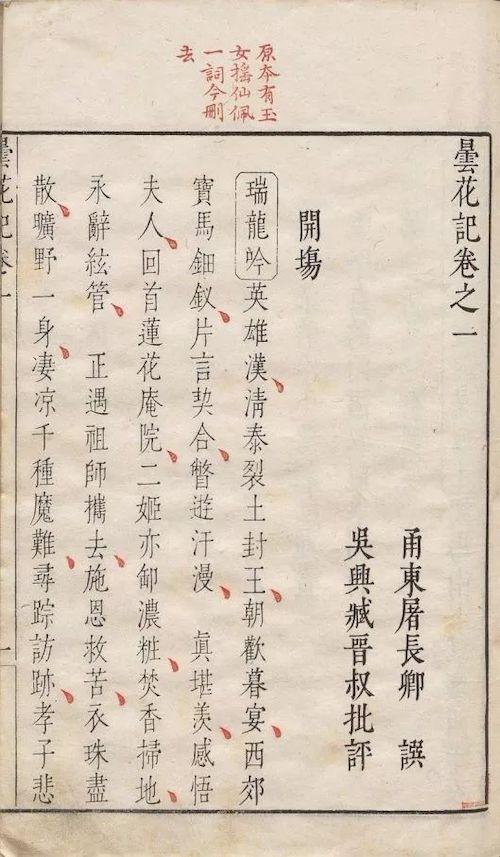 原本有玉
女搖仙佩
一詞今刪
去
曇花記卷之一
甬東屠長卿 譔
吳興臧晉叔批評
開場
瑞龍吟英雄漢淸泰裂土封王朝歡暮宴西郊
寶馬鈿釵片言契合瞥遊汗漫 眞堪羨感悟
夫人回首蓮花庵院二姬亦卸濃粧焚香掃地
永辭絃管 正遇祖師攜去施恩救苦衣珠盡
散曠野一身凄凉千種魔難尋踪訪跡孝子悲
曇花記卷一
一